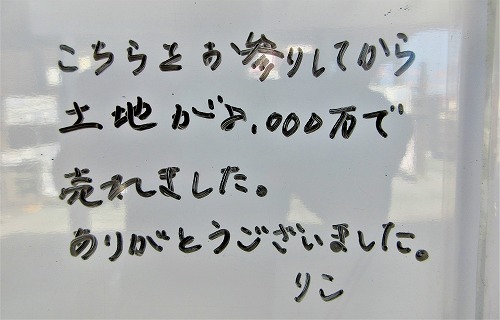 こちらとお参りしてから
土地が8,000万で
売れました。
ありがとうございました。
りこ